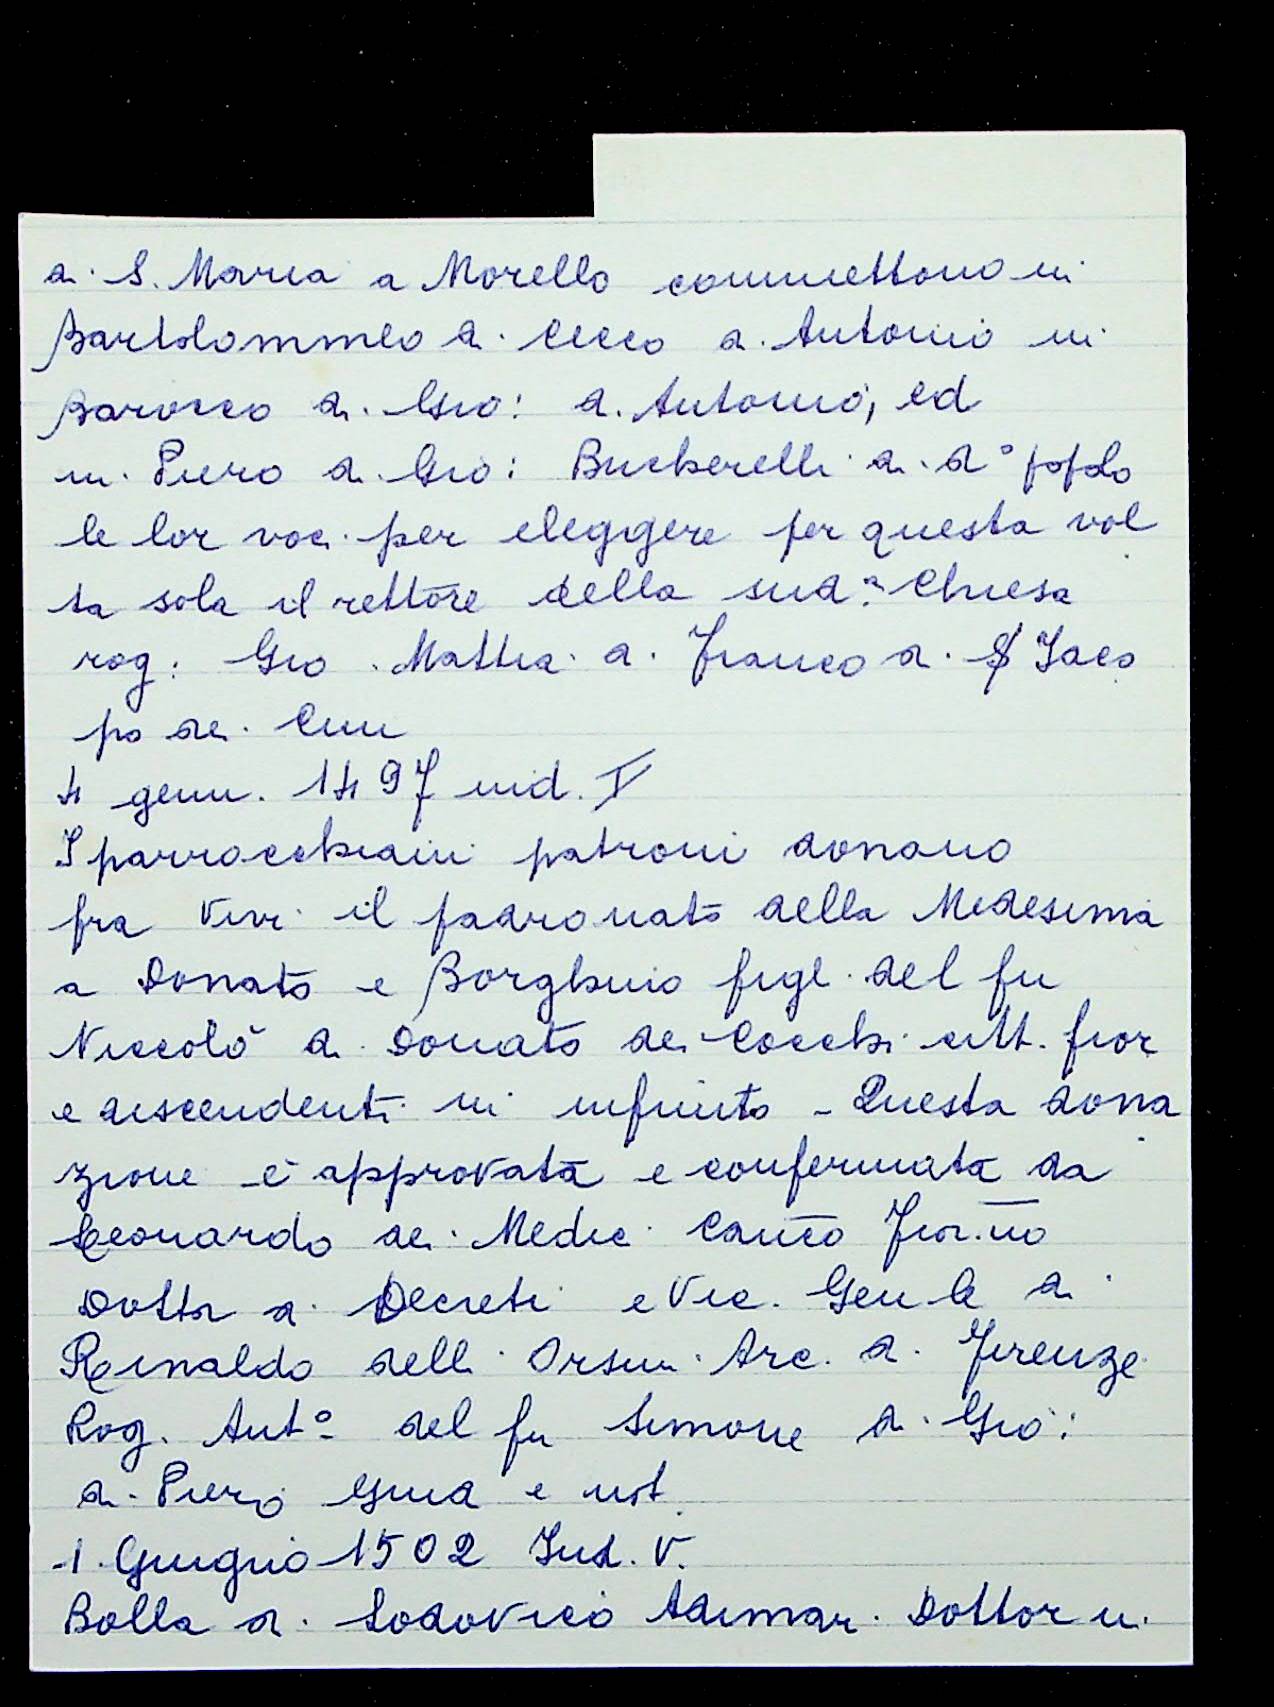 di S. Maria a Morello commettono in
Bartolommeo di Cecco d. Antonio in
Barocco di Gio: d. Antonio, ed
in Piero di Gio: Bucherelli di do popolo
le lor voci per eleggere per questa vol
ta sola il rettore della suda Chiesa
rog: Gio Mattia d. Franco d. Jaco
po dei Cini
4 genn. 1497 ind. V
I parrocchiani patroni donano
fra vivi il padronato della Medesima
a Donato e Borghino figl. del fu
Niccolò di Donato dei Cocchi citt. fior
e discendenti in infinito - Questa dona
zione è approvata e confermata da
Leonardo dei Medici Canco Fior.no
Dottr di Decreti e Vic. Genle di
Rinaldo delli Orsini Arc. di Firenze
Rog. Anto del fu Simone di Gio:
di Piero e not
1 Giugno 1502 Ind. V.
Bolla di Lodovico Adimari Dottor in